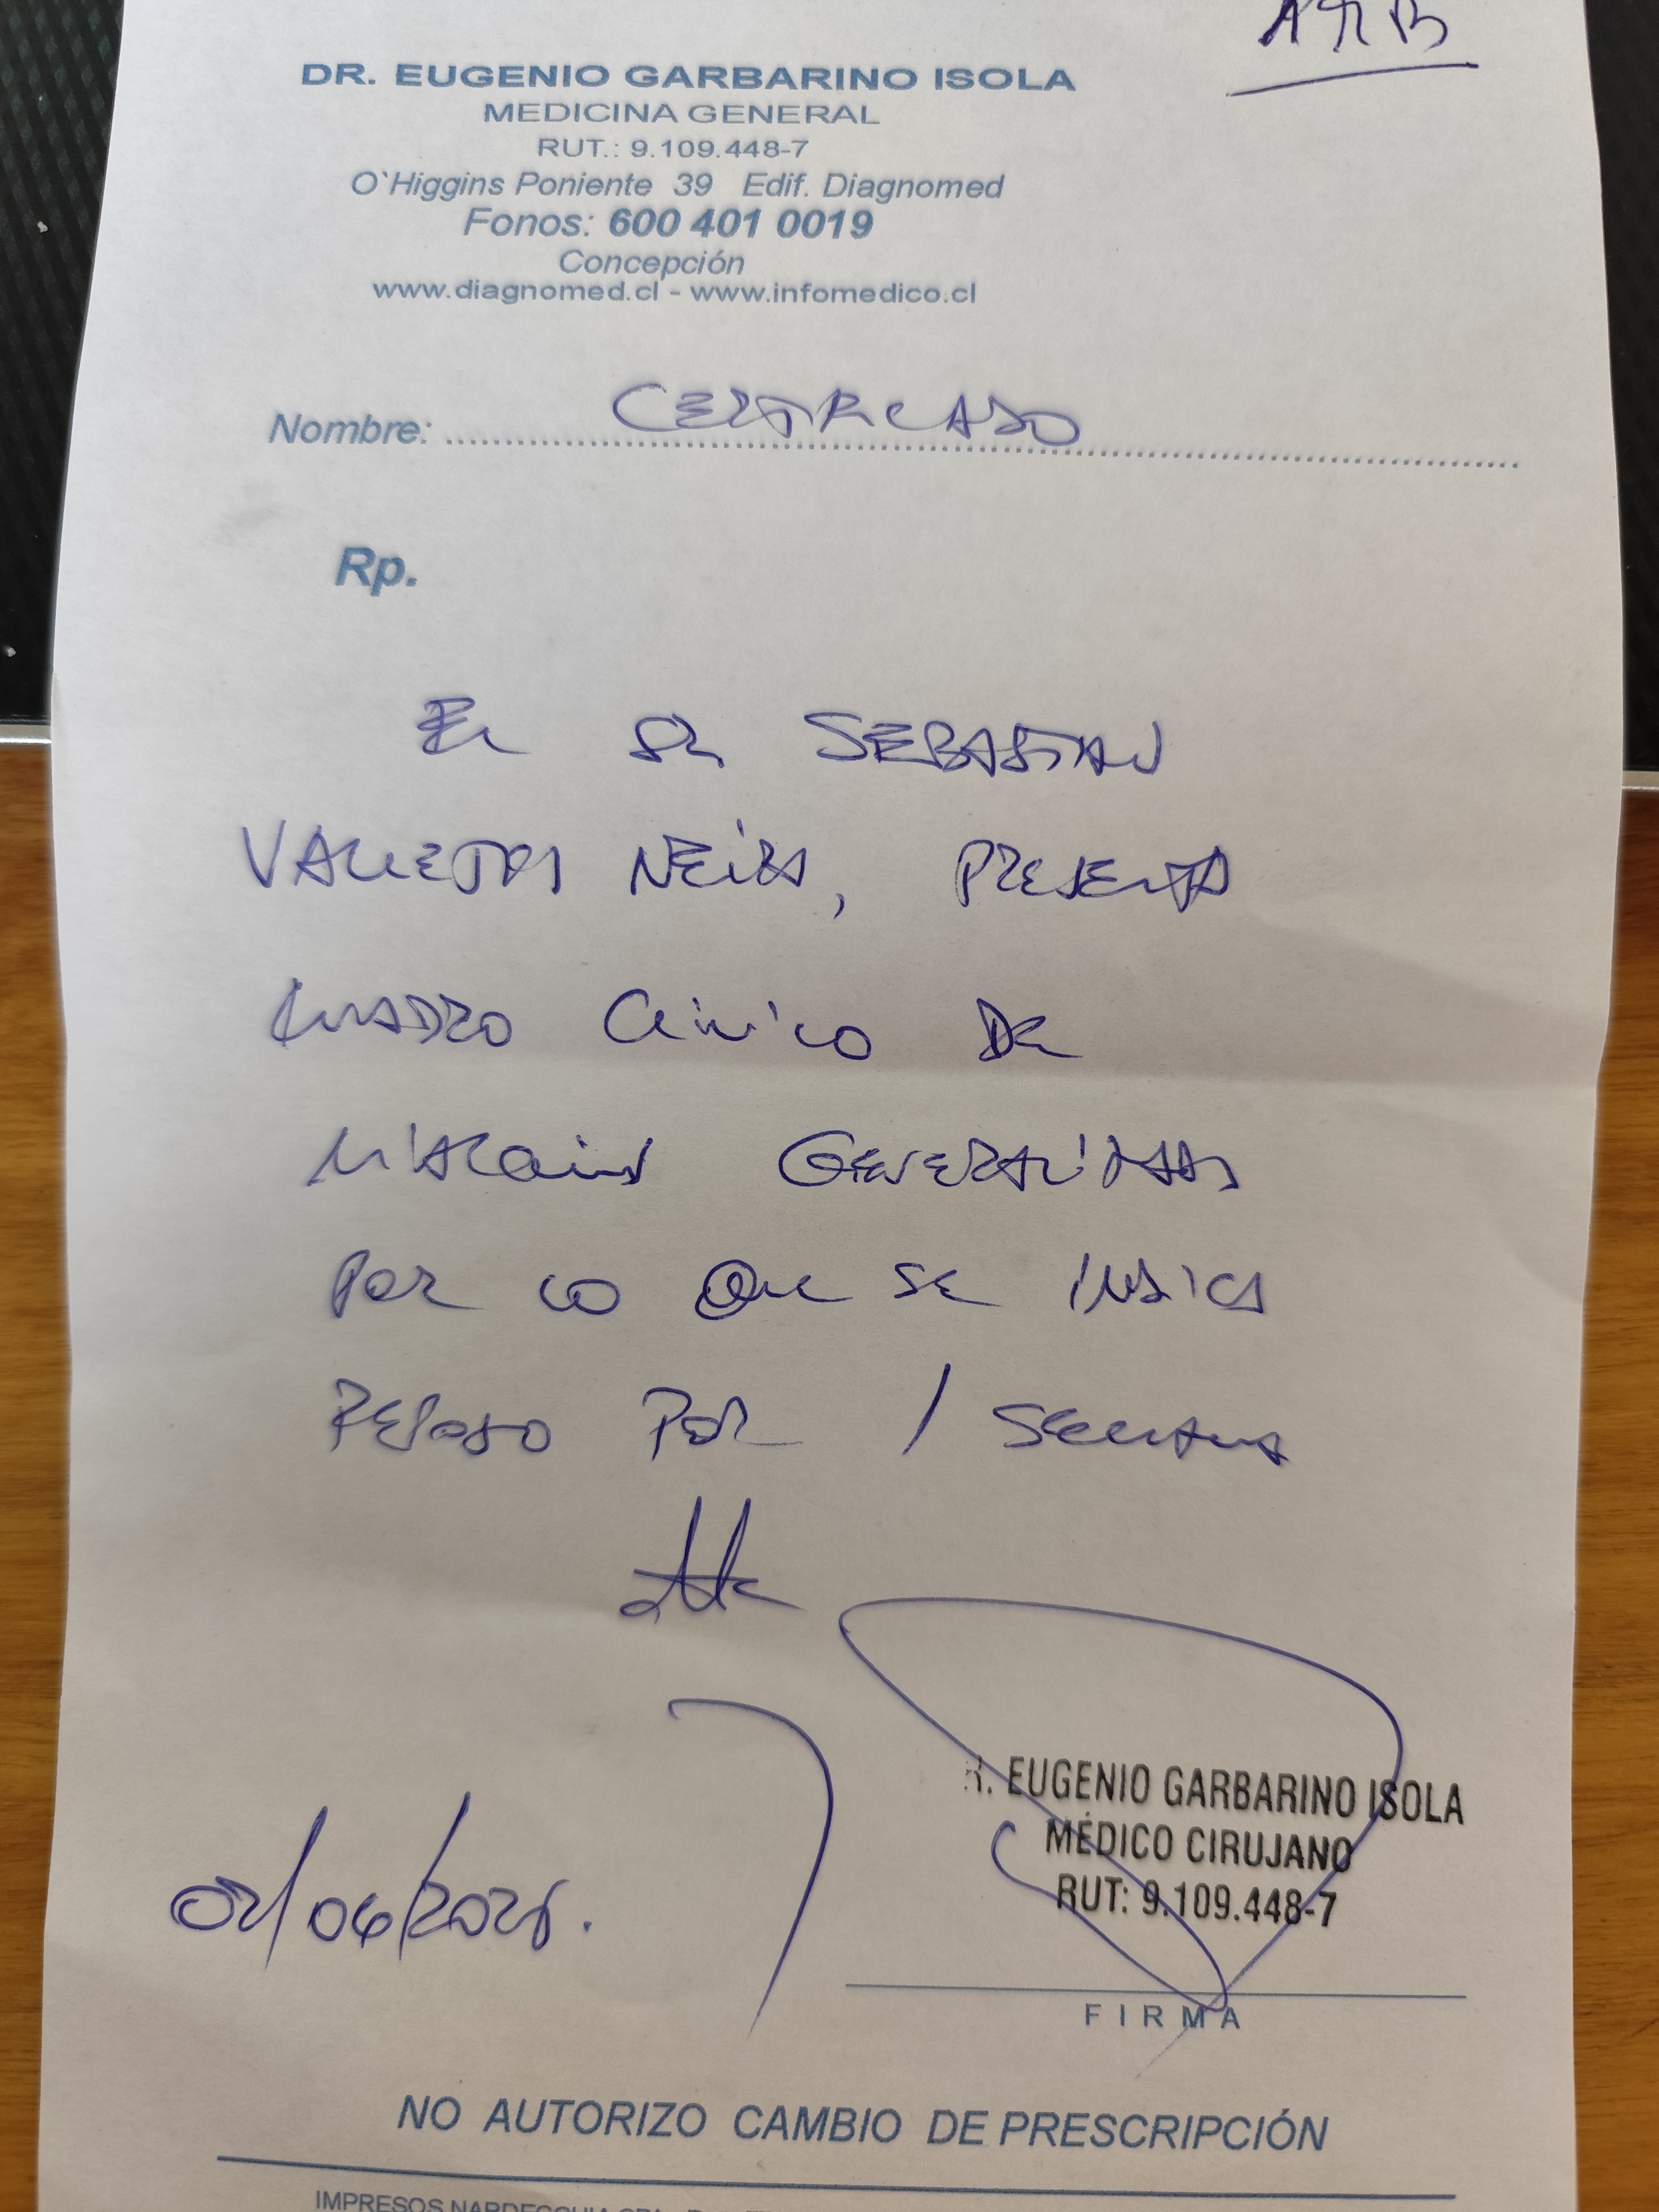 DR. EUGENIO GARBARINO ISOLA
MEDICINA GENERAL
RUT.: 9.109.448-7
O`Higgins Poniente 39 Edif. Diagnomed
Fonos: 600 401 0019
Concepción
www.diagnomed.cl - www.infomedico.cl
Nombre: CERTIFICADO
Rp.
El Sr SEBASTIAN
NEIRA, PRESENTA
CUADRO CLINICO DE
GENERALIZADAS
POR LO QUE SE INDICA
REPOSO POR 1 SEMANA
Atte
02/06/2025.
R. EUGENIO GARBARINO ISOLA
MÉDICO CIRUJANO
RUT: 9.109.448-7
FIRMA
NO AUTORIZO CAMBIO DE PRESCRIPCIÓN
IMPRESOS